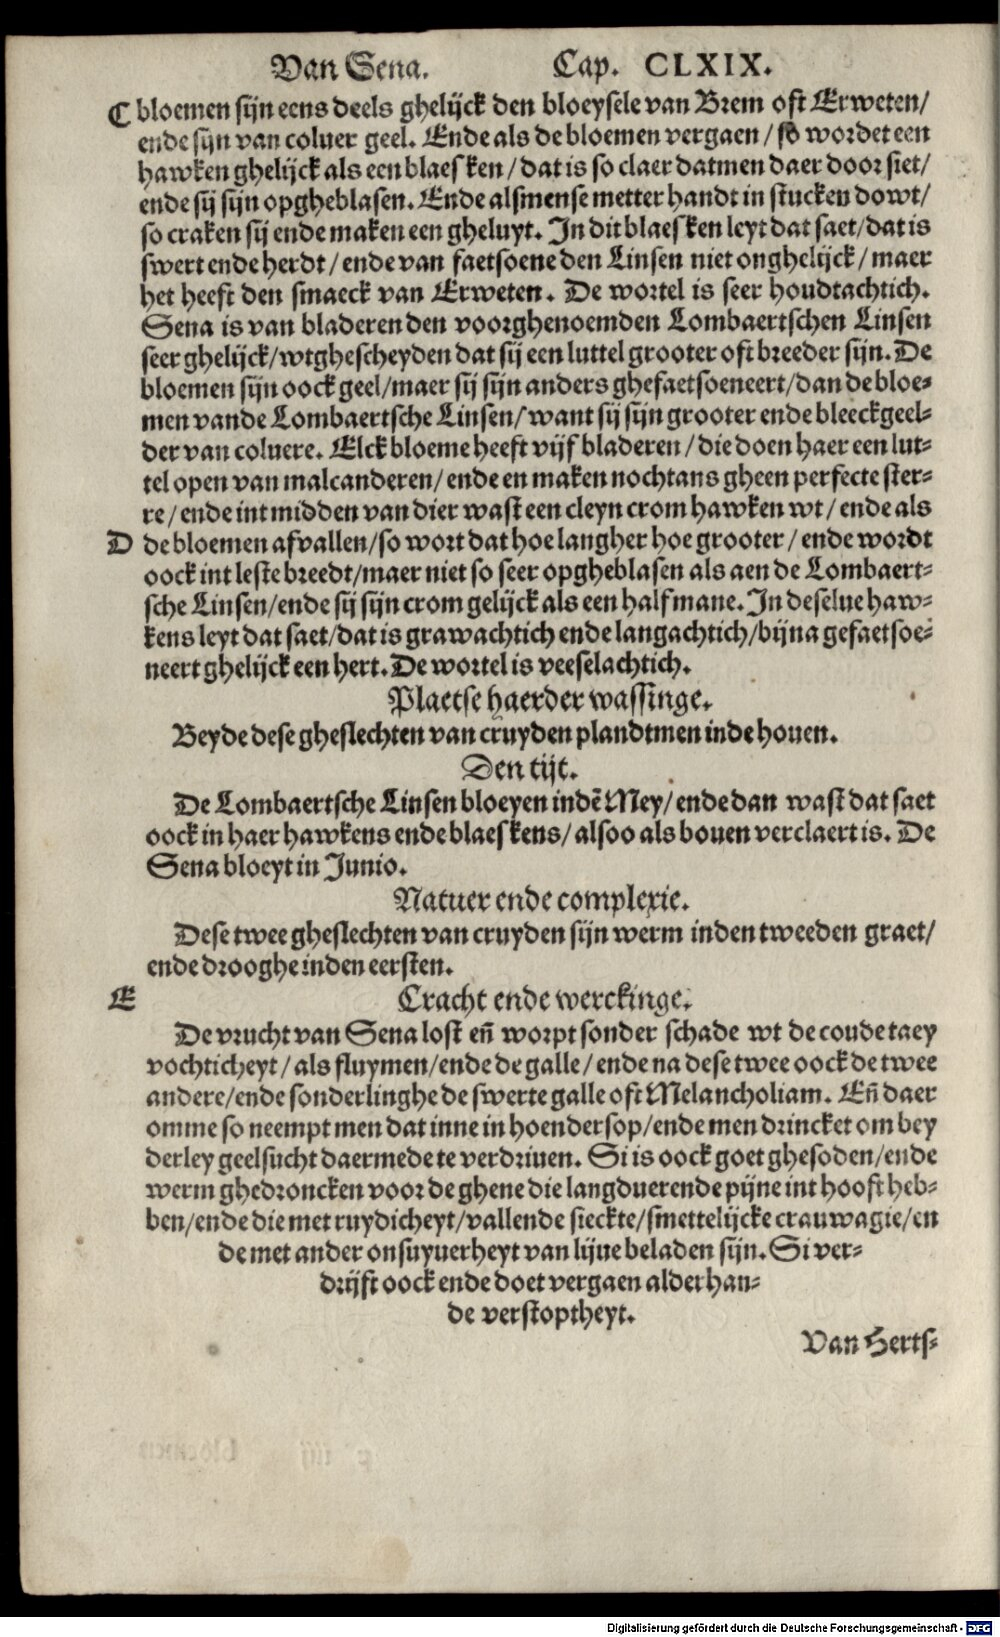 Van Sena. Cap. CLXIX.
C bloemen sijn eens deels ghelijck den bloeysele van Brem oft Erweten/
ende sijn van coluer geel. Ende als de bloemen vergaen/ so wordet een
hawken ghelijck als een blaesken/ dat is so claer datmen daer door siet/
ende sij sijn opgheblasen. Ende alsmense metter handt in stucken dowt/
so craken sij ende maken een gheluyt. In dit blaesken leyt dat saet/ dat is
swert ende herdt/ ende van faetsoene den Linsen niet onghelijck/ maer
het heeft den smaeck van Erweten. De wortel is seer houdtachtich.
Sena is van bladeren den voorghenoemden Lombaertschen Linsen
seer ghelijck/ wtghescheyden dat sij een luttel grooter oft breeder sijn. De
bloemen sijn oock geel/ maer sij sijn anders ghefaetsoeneert/ dan de bloe-
men vande Lombaertsche Linsen/ want sij sijn grooter ende bleeckgeel-
der van coluere. Elck bloeme heeft vijf bladeren/ die doen haer een lut-
tel open van malcanderen/ ende en maken nochtans gheen perfecte ster-
re/ ende int midden van dier wast een cleyn crom hawken wt/ ende als
D de bloemen afvallen/ so wort dat hoe langher hoe grooter/ ende wordt
oock int leste breedt/ maer niet so seer opgheblasen als aen de Lombaert-
sche Linsen/ ende sij sijn crom gelijck als een half mane. In deselue haw-
kens leyt dat saet/ dat is grawachtich ende langachtich/ bijna gefaetsoe-
neert ghelijck een hert. De wortel is veeselachtich.
Plaetse haerder wassinge.
Beyde dese gheslechten van cruyden plandtmen inde houen.
Den tijt.
De Lombaertsche Linsen bloeyen indẽ Mey/ ende dan wast dat saet
oock in haer hawkens ende blaeskens/ alsoo als bouen verclaert is. De
Sena bloeyt in Junio.
Natuer ende complexie.
Dese twee gheslechten van cruyden sijn werm inden tweeden graet/
ende drooghe inden eersten.
E Cracht ende werckinge.
De vrucht van Sena lost eñ worpt sonder schade wt de coude taey
vochticheyt/ als fluymen/ ende de galle/ ende na dese twee oock de twee
andere/ ende sonderlinghe de swerte galle oft Melancholiam. Eñ daer
omme so neempt men dat inne in hoendersop/ ende men drincket om bey
derley geelsucht daermede te verdriuen. Si is oock goet ghesoden/ ende
werm ghedroncken voor de ghene die langduerende pijne int hooft heb-
ben/ ende die met ruydicheyt/ vallende sieckte/ smettelijcke crauwagie/ en
de met ander onsuyuerheyt van lijue beladen sijn. Si ver-
drijft oock ende doet vergaen alderhan-
de verstoptheyt.
Van Herts-
Digitalisierung gefördert durch die Deutsche Forschungsgemeinschaft - DFG